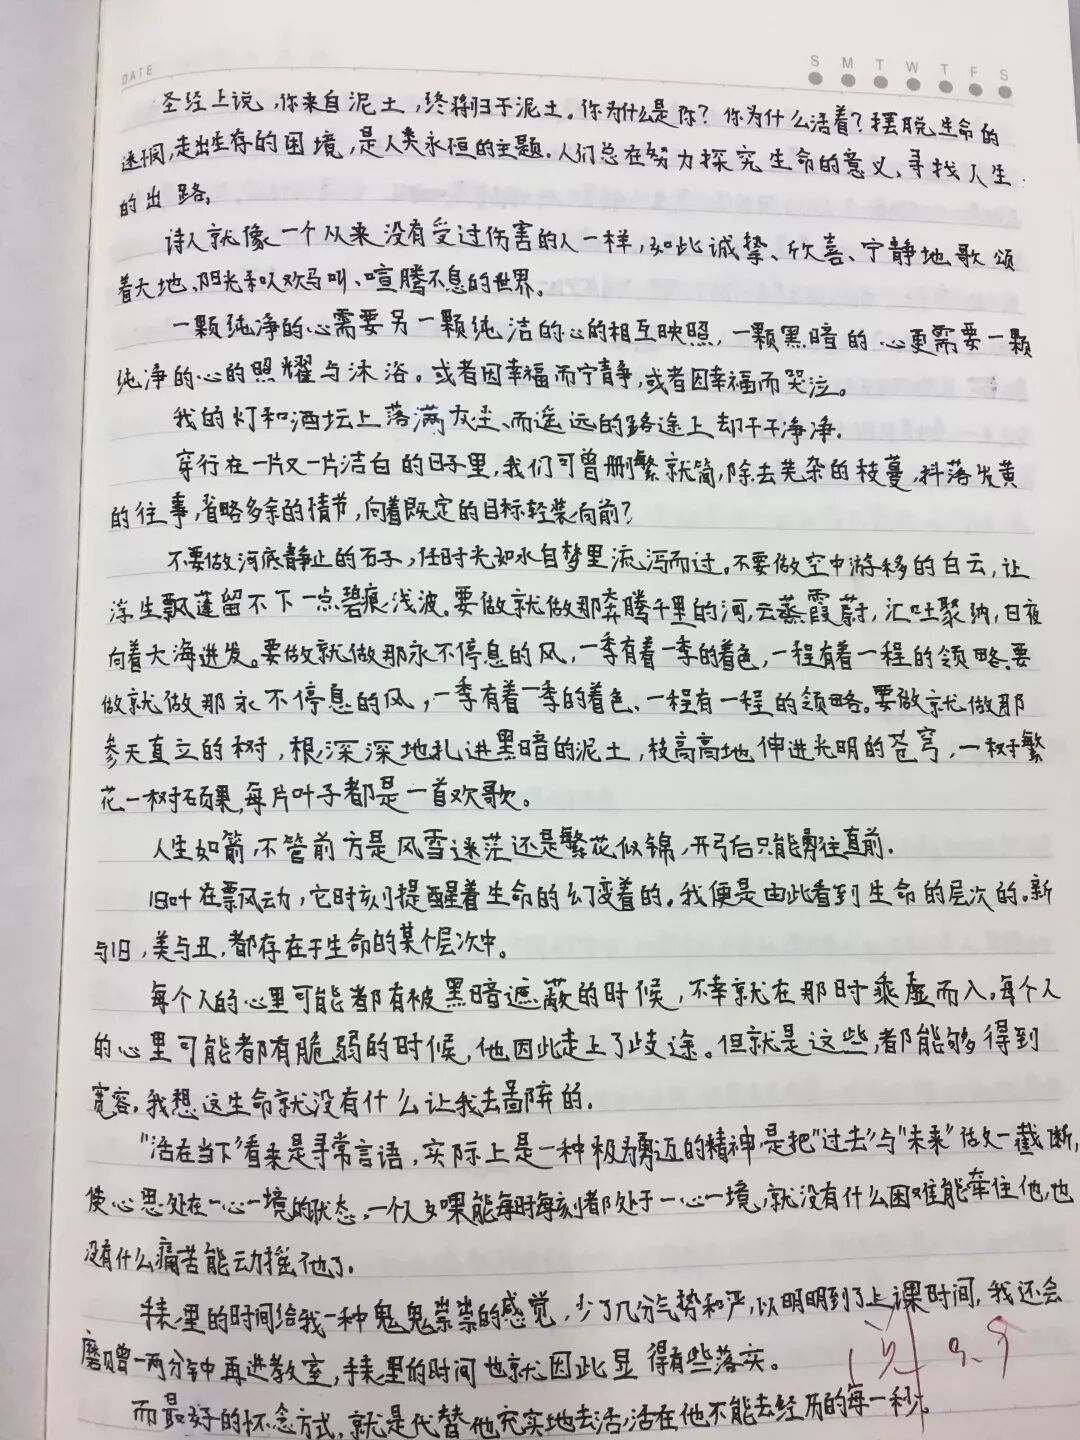 DATE
S M T W T F S
圣经上说,你来自泥土,终将归于泥土。你为什么是你?你为什么活着?摆脱生命的
迷惘,走出生存的困境,是人类永恒的主题。人们总在努力探究生命的意义,寻找人生
的出路。
诗人就像一个从来没有受过伤害的人一样,如此诚挚、欣喜、宁静地歌颂
着大地、阳光和以欢马叫、喧腾不息的世界。
一颗纯净的心需要另一颗纯洁的心的相互映照,一颗黑暗的心更需要一颗
纯净的心的照耀与沐浴。或者因幸福而宁静,或者因幸福而哭泣。
我的灯和酒坛上落满灰尘、而遥远的路途上却干干净净.
穿行在一片又一片洁白的日子里,我们可曾删繁就简,除去芜杂的枝蔓,抖落发黄
的往事,省略多余的情节,向着既定的目标轻装向前?
不要做河底静止的石子,任时光如水自梦里流泻而过。不要做空中游移的白云,让
浮生飘蓬留不下一点碧痕浅波。要做就做那奔腾千里的河,云蒸霞蔚,汇吐聚纳,日夜
向着大海进发。要做就做那永不停息的风,一季有着一季的着色,一程有着一程的领略。要
做就做那永不停息的风,一季有着一季的着色、一程有一程的领略。要做就做那
参天直立的树,根深深地扎进黑暗的泥土,枝高高地伸进光明的苍穹,一树繁
花一树硕果,每片叶子都是一首欢歌。
人生如箭,不管前方是风雪迷茫还是繁花似锦,开弓后只能勇往直前.
旧叶在飘风动,它时刻提醒着生命的幻变着的。我便是由此看到生命的层次的。新
与旧,美与丑,都存在于生命的某个层次中。
每个人的心里可能都有被黑暗遮蔽的时候,不幸就在那时乘虚而入。每个人
的心里可能都有脆弱的时候,他因此走上了歧途。但就是这些,都能够得到
宽容,我想这生命就没有什么让我去鄙弃的.
“活在当下”看来是寻常言语,实际上是一种极为勇迈的精神是把“过去”与“未来”做一截断,
使心思处在一心一境的状态,一个人如果能每时每刻都处于一心一境,就没有什么困难能牵住他,也
没有什么痛苦能动摇他了.
表里的时间给我一种鬼鬼祟祟的感觉,少了几分气势和严,以明明到了上课时间,我还会
磨蹭一两分钟再进教室,表里的时间也就因此显得有些落实。
而最好的怀念方式,就是代替他充实地去活,活在他不能去经历的每一秒。
9.9